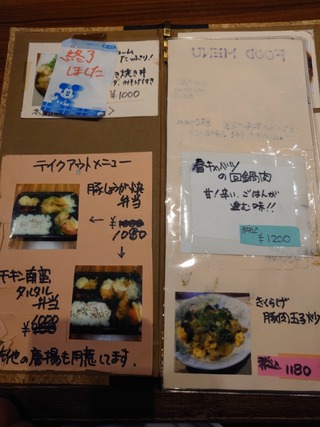 終了
しました
き焼き丼
¥1000
テイクアウトメニュー
豚しょうが焼
弁当
1080
チキン南蛮
タルタル
弁当
他の唐揚も用意してます。
FOOD MENU
春キャベツ
の回鍋肉
甘!辛い、ごはんが
進む味!!
税込 ¥1200
きくらげ
豚肉玉子炒
税込 1180